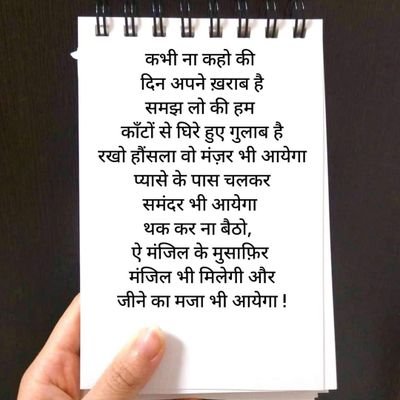 कभी ना कहो की
दिन अपने ख़राब है
समझ लो की हम
काँटों से घिरे हुए गुलाब है
रखो हौंसला वो मंज़र भी आयेगा
प्यासे के पास चलकर
समंदर भी आयेगा
थक कर ना बैठो,
ऐ मंजिल के मुसाफ़िर
मंजिल भी मिलेगी और
जीने का मजा भी आयेगा !